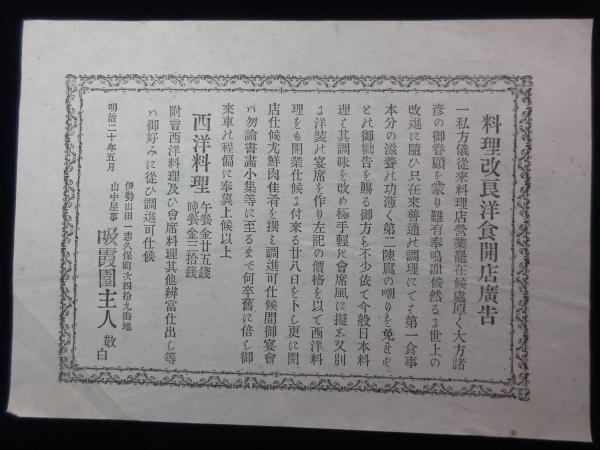 料理改良洋食開店廣告
一私方儀從來料理店營業罷在候處厚く大方諸
彦の御眷顧を蒙り難有奉鳴謝候然るは世上の
改進に隨ひ只在來普通は調理にてそ第一食事
本分の滋養は功薄く第二陳腐の嘲りを免を
とは御勸告を賜る御方も不少依て今般日本料
理そ其調味を改め極手輕は會席風に擬ゑ又別
は洋裝は宴席を作り左記の價格を以て西洋料
理をも開業仕候は付來る廿八日を卜し更に開
店仕候尤鮮肉佳肴を撰み調進可仕候間御宴會
ハ勿論書畵小集等に至るまで何卒舊に倍し御
來車は程偏に奉冀上候以上
西洋料理 午餐金廿五錢 晩餐金三拾錢
附言西洋料理及ひ會席料理其他辨當仕出し等
ハ御好みに從ひ調進可仕候
明治二十年五月
伊勢山田一志久保町四拾九番地
山中屋事 吸霞園主人 敬白